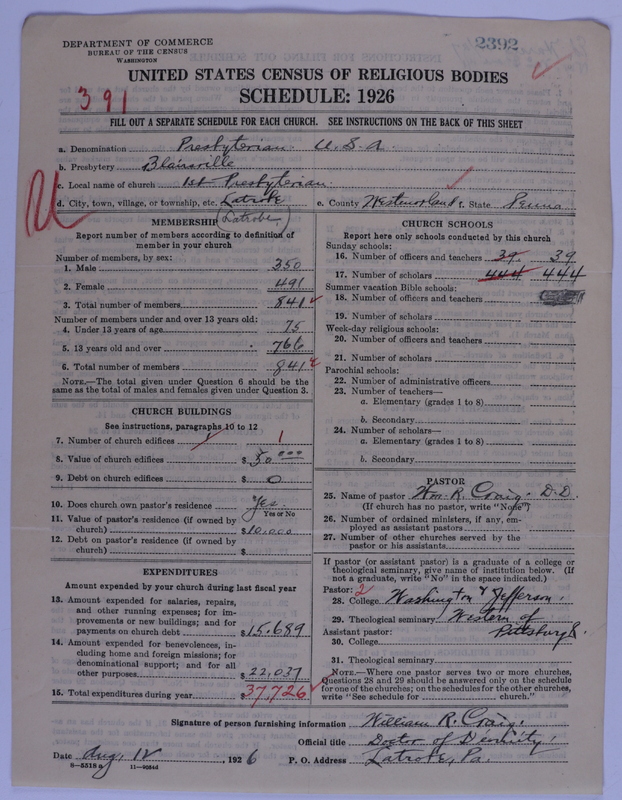 DEPARTMENT OF COMMERCE
BUREAU OF THE CENSUS
WASHINGTON
2392
UNITED STATES CENSUS OF RELIGIOUS BODIES
SCHEDULE: 1926
391
FILL OUT A SEPARATE SCHEDULE FOR EACH CHURCH. SEE INSTRUCTIONS ON THE BACK OF THIS SHEET
a. Denomination Presbyterian U.S.A
b. Presbytery Blairsville
c. Local name of church 1st Presbyterian
d. City, town, village, or township, etc. Latrobe e. County Westmoreland f. State Penna
(Latrobe)
MEMBERSHIP
Report number of members according to definition of
member in your church
Number of members, by sex:
1. Male 350
2. Female 491
3. Total number of members 841
Number of members under and over 13 years old:
4. Under 13 years of age 75
5. 13 years old and over 766
6. Total number of members 841
NOTE.—The total given under Question 6 should be the
same as the total of males and females given under Question 3.
CHURCH BUILDINGS
See instructions, paragraphs 10 to 12
7. Number of church edifices 1
8. Value of church edifices $50000
9. Debt on church edifices $0
10. Does church own pastor's residence Yes
Yes or No
11. Value of pastor's residence (if owned by
church) $10,000
12. Debt on pastor's residence (if owned by
church) $
EXPENDITURES
Amount expended by your church during last fiscal year
13. Amount expended for salaries, repairs,
and other running expenses; for im-
provements or new buildings; and for
payments on church debt $15.689
14. Amount expended for benevolences, in-
cluding home and foreign missions; for
denominational support; and for all
other purposes $22,037
15. Total expenditures during year $37,726
CHURCH SCHOOLS
Report here only schools conducted by this church
Sunday schools:
16. Number of officers and teachers 39 39
17. Number of scholars 444 444
Summer vacation Bible schools:
18. Number of officers and teachers
19. Number of scholars
Week-day religious schools:
20. Number of officers and teachers
21. Number of scholars
Parochial schools:
22. Number of administrative officers
23. Number of teachers—
a. Elementary (grades 1 to 8)
b. Secondary
24. Number of scholars—
a. Elementary (grades 1 to 8)
b. Secondary
PASTOR
25. Name of pastor Wm. R. Craig. D.D.
(If church has no pastor, write "None")
26. Number of ordained ministers, if any, em-
ployed as assistant pastors
27. Number of other churches served by the
pastor or his assistants
If pastor (or assistant pastor) is a graduate of a college or
theological seminary, give name of institution below. (If
not a graduate, write "No" in the space indicated.)
Pastor: 2
28. College Washington & Jefferson.
29. Theological seminary Western of
Assistant pastor: Pittsburgh.
30. College
31. Theological seminary
NOTE.—Where one pastor serves two or more churches,
Questions 28 and 29 should be answered only on the schedule
for one of the churches; on the schedules for the other churches,
write "See schedule for church."
Signature of person furnishing information William R. Craig.
Official title Doctor of Divinity.
Date Aug. 12, 1926 P. O. Address Latrobe, Pa.
8—5518a 11—9284d